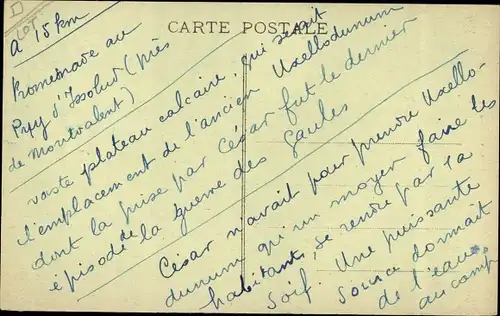 LOT
CARTE POSTALE
à 15 km
Promenade au
Puy d'Issolud (près
de Montvalent)
vaste plateau calcaire, qui serait
l'emplacement de l'ancien Uxellodunum
dont la prise par César fut le dernier
épisode de la guerre des Gaules
César n'avait pour prendre Uxello-
dunum qu'un moyen faire les
habitants, se rendre par la
soif. Une puissante
source donnait
de l'eau
au camp